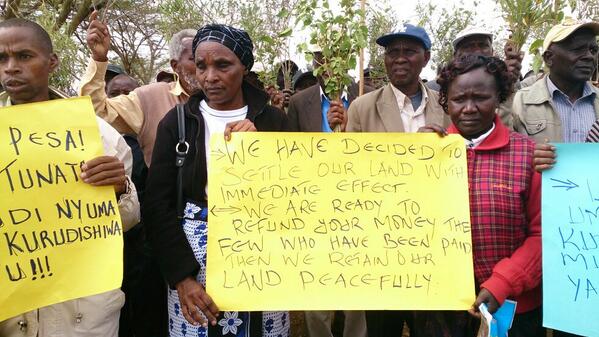 PESA!
TUNAT
DI NYUMA
KURUDISHIWA
U!!!
→ WE HAVE DECIDED TO
SETTLE OUR LAND WITH
IMMEDIATE EFFECT.
↔ WE ARE READY TO
REFUND YOUR MONEY THE
FEW WHO HAVE BEEN PAID
THEN WE RETAIN OUR
LAND PEACEFULLY.
U
KU
MI
YA